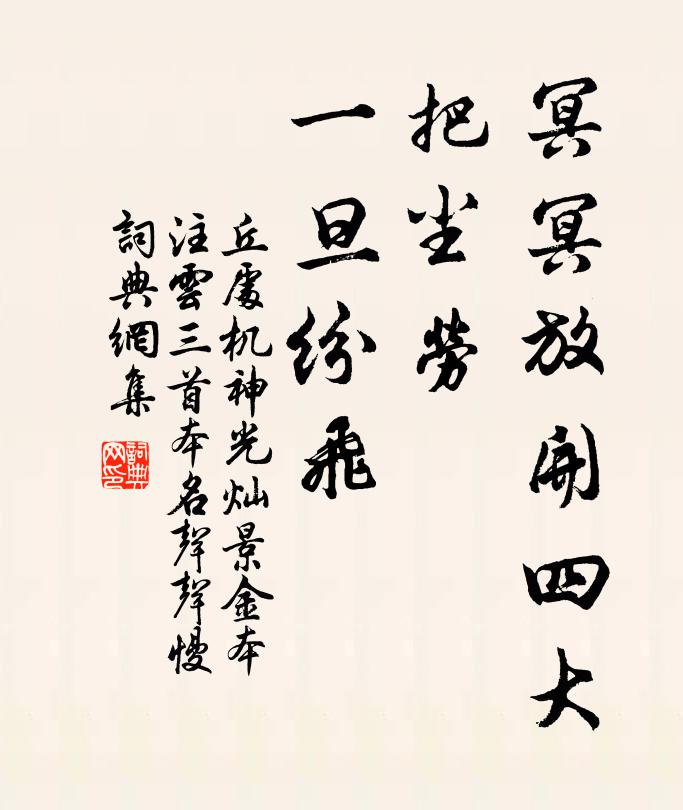 冥冥放開四大
把尘勞
一旦紛飛
丘處机神光灿景金本
注雲三首本名聲聲慢
詞典網集
詞典网印